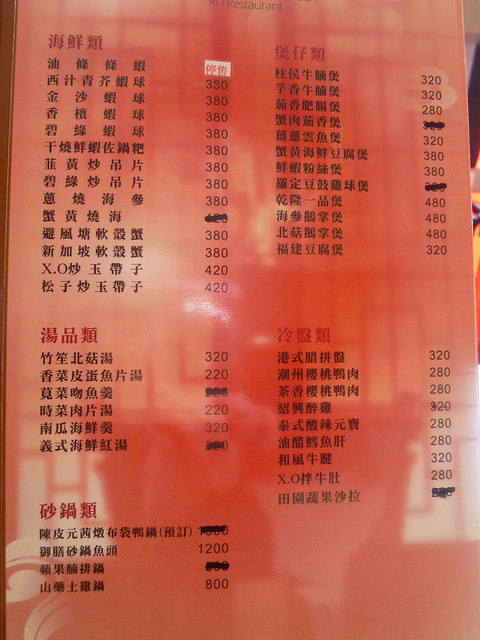 Restaurant
海鮮類
油條條蝦 停售
西汁青芥蝦球 330
金沙蝦球 380
香檳蝦球 380
碧綠蝦球 380
干燒鮮蝦佐鍋粑 380
韮黃炒吊片 380
碧綠炒吊片 380
蔥燒海參 380
蟹黃燒海
避風塘軟殼蟹 380
新加坡軟殼蟹 380
X.O炒玉帶子 420
松子炒玉帶子 420
煲仔類
柱侯牛腩煲 320
芋香牛腩煲 320
茄香肥腸煲 280
蟹肉茄香煲
薑蔥雲魚煲 320
蟹黃海鮮豆腐煲 380
鮮蝦粉絲煲 380
羅定豆豉雞球煲
乾隆一品煲 480
海參鵝掌煲 480
北菇鵝掌煲 480
福建豆腐煲 320
湯品類
竹笙北菇湯 320
香菜皮蛋魚片湯 220
莧菜吻魚羹
時菜肉片湯 220
南瓜海鮮羹 320
義式海鮮紅湯
冷盤類
港式腊拼盤 320
潮州櫻桃鴨肉 280
茶香櫻桃鴨肉 280
紹興醉雞 320
泰式酸辣元寶 280
油醋鱈魚肝 280
和風牛腱 320
X.O拌牛肚 280
田園蔬果沙拉
砂鍋類
陳皮元茜燉布袋鴨鍋(預訂)
御膳砂鍋魚頭 1200
蘋果腩排鍋
山藥土雞鍋 800